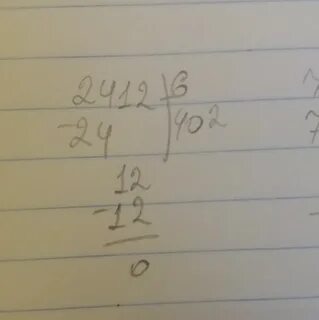 2412 6
-24 402
12
-12
0
7
7
-